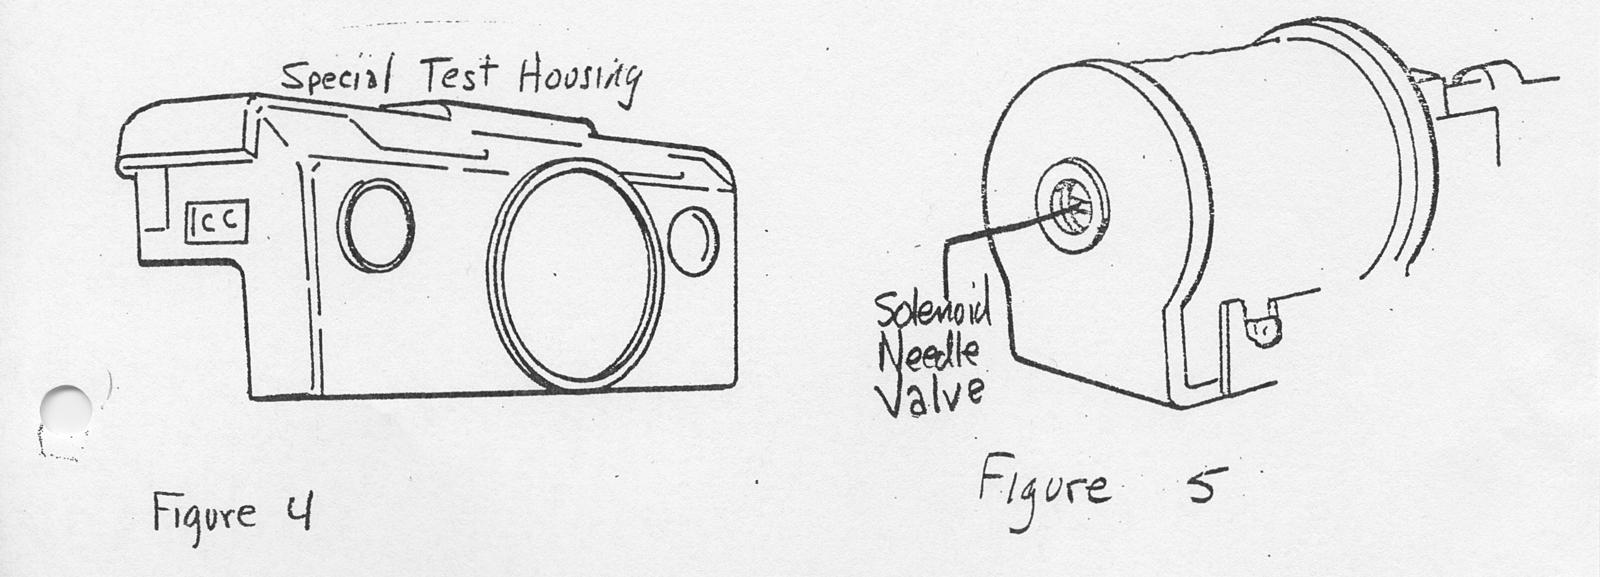 Special Test Housing
ICC
Figure 4
Solenoid
Needle
Valve
Figure 5